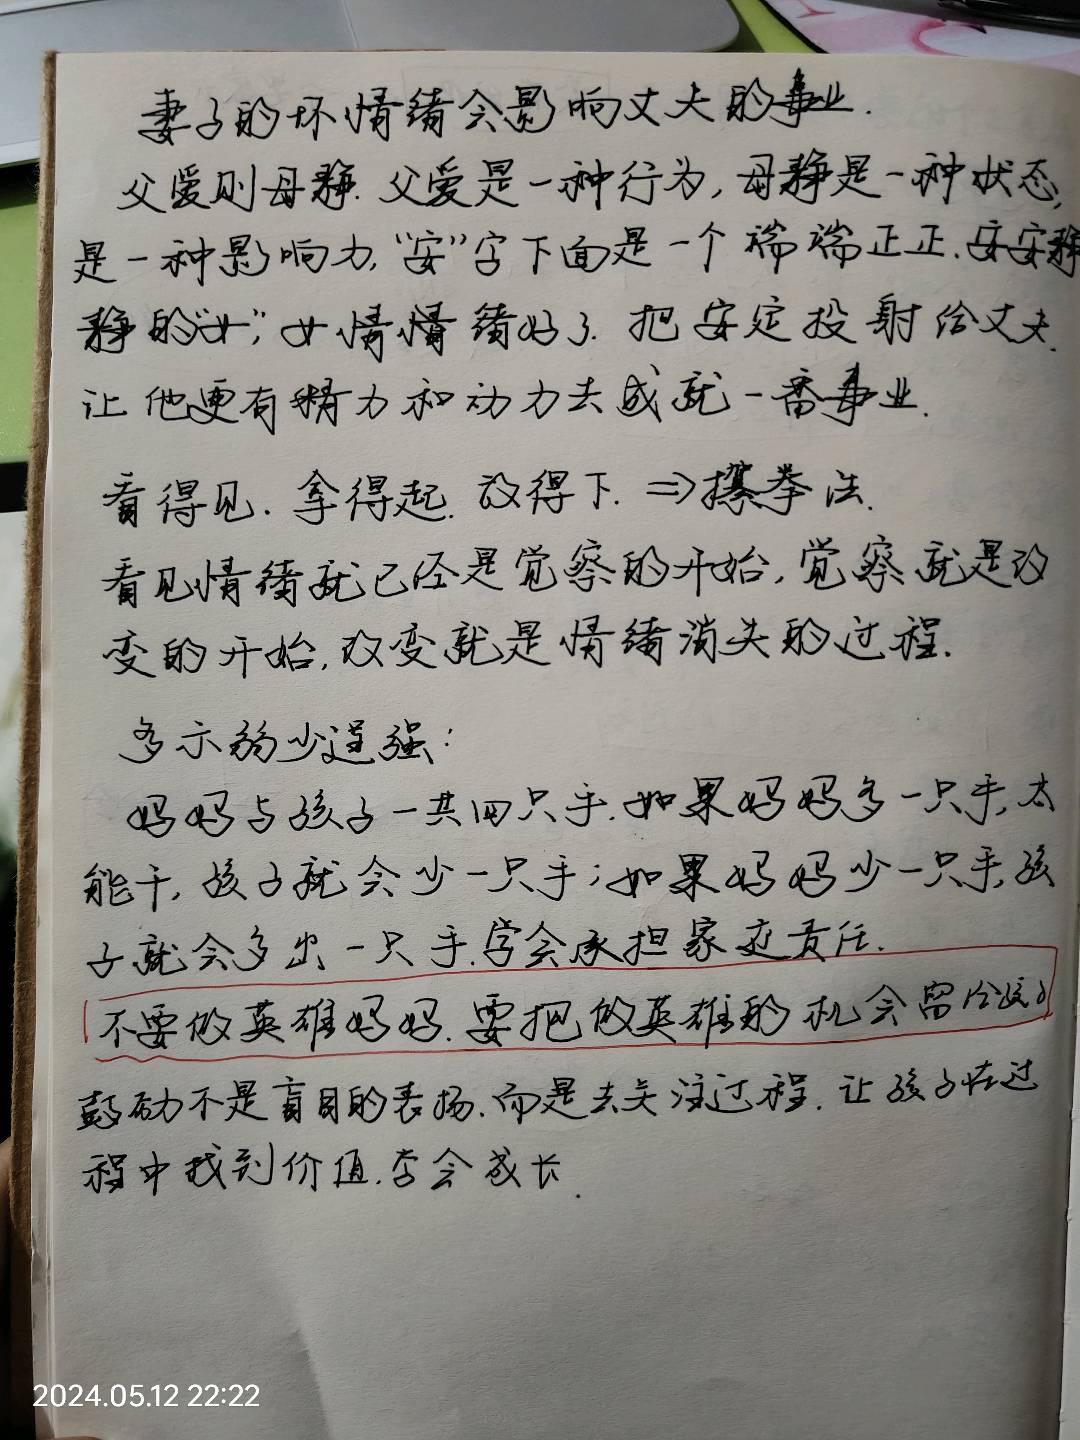 妻子的坏情绪会影响丈夫的事业.
父爱则母静.父爱是一种行为,母静是一种状态,
是一种影响力,"安"字下面是一个端端正正.安安静
静的"女",女情情绪好了.把安定投射给丈夫.
让他更有精力和动力去成就一番事业.
看得见.拿得起.放得下.⇒攥拳法.
看见情绪就已经是觉察的开始,觉察就是改
变的开始,改变就是情绪消失的过程.
多示弱少逞强:
妈妈与孩子一共四只手.如果妈妈多一只手,太
能干,孩子就会少一只手;如果妈妈少一只手,孩
子就会多出一只手.学会承担家庭责任.
不要做英雄妈妈.要把做英雄的机会留给孩子
鼓励不是盲目的表扬.而是去关注过程.让孩子在过
程中找到价值.学会成长.
2024.05.12 22:22